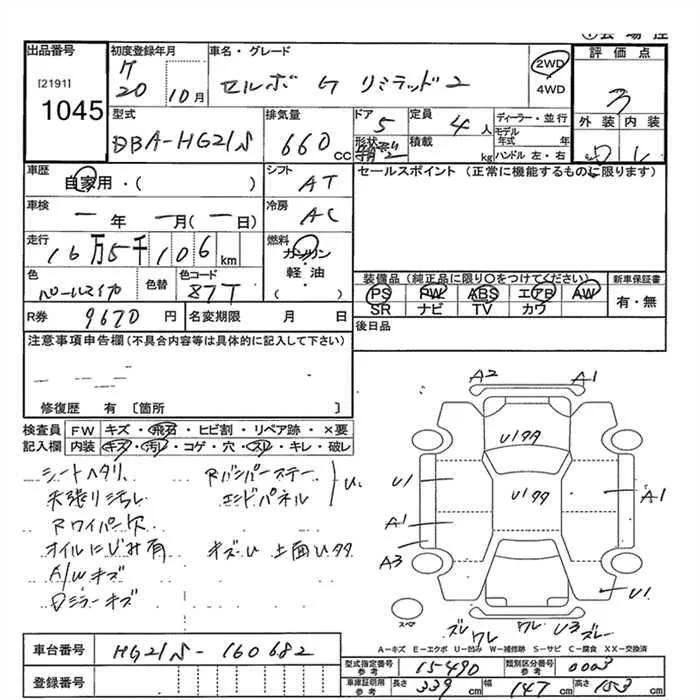 出品番号
[2191]
1045
初度登録年月
20 10月
車名・グレード
セルボ G リミテッド2
2WD
4WD
評価点
3
外装 内装
型式
DBA-HG21S
排気量
660 cc
ドア
5
形状
定員
4人
積載
kg
ディーラー・並行
モデル年式 年
ハンドル 左・右
車歴
自家用・( )
シフト
AT
セールスポイント (正常に機能するものに限ります)
車検
一年 一月(一日)
冷房
AC
走行
16万5千106km
燃料
ガソリン
軽油
( )
色
パールマイカ
色替
色コード
87T
装備品(純正品に限り○をつけてください)
PS PW ABS エアB AW
SR ナビ TV カワ
新車保証書
有・無
R券
9670円
名変期限 月 日
後日品
注意事項申告欄(不具合内容等は具体的に記入して下さい)
修復歴 有 [箇所 ]
検査員記入欄
FW キズ・飛石・ヒビ割・リペア跡・×要
内装 キズ・汚レ・コゲ・穴・スレ・キレ・破レ
シートヘタリ
天張り汚レ
Rワイパー欠
オイルにじみ有
A/Wキズ
Dミラーキズ
Rバンパーステー
エンドパネル
U.
キズU 上面Uタタ
A2 A1
U1タタ
U1タタ
U1
A1
A3
A1
U1
ズレ ワレ ワレ U3 ズレ
スペア
A-キズ E-エクボ U-凹み W-補修跡 S-サビ C-腐食 XX-交換済
車台番号
HG21S-160682
登録番号
型式指定番号 参考
15490
類別区分番号 参考
0003
車庫証明用 参考
長さ 339cm
幅 147cm
高さ 153cm